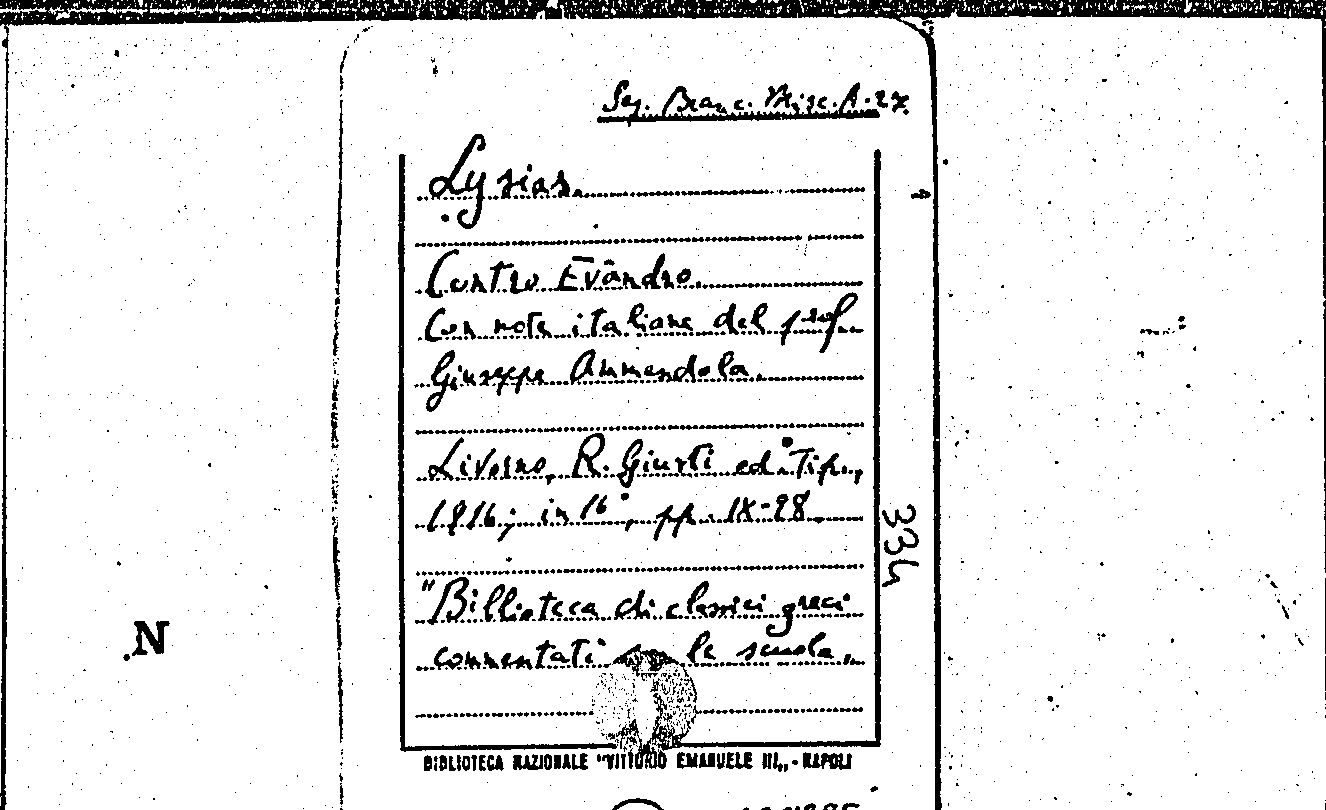 Sez. Branc. Misc. A. 27
Lysias.
Contro Evandro.
Con note italiane del prof.
Giuseppe Ammendola.
Livorno, R. Giusti ed. Tip.,
1916; in 16°, pp. IX-98.
"Biblioteca di classici greci
commentati la scuola„
334
N
BIBLIOTECA NAZIONALE "VITTORIO EMANUELE III„ - NAPOLI